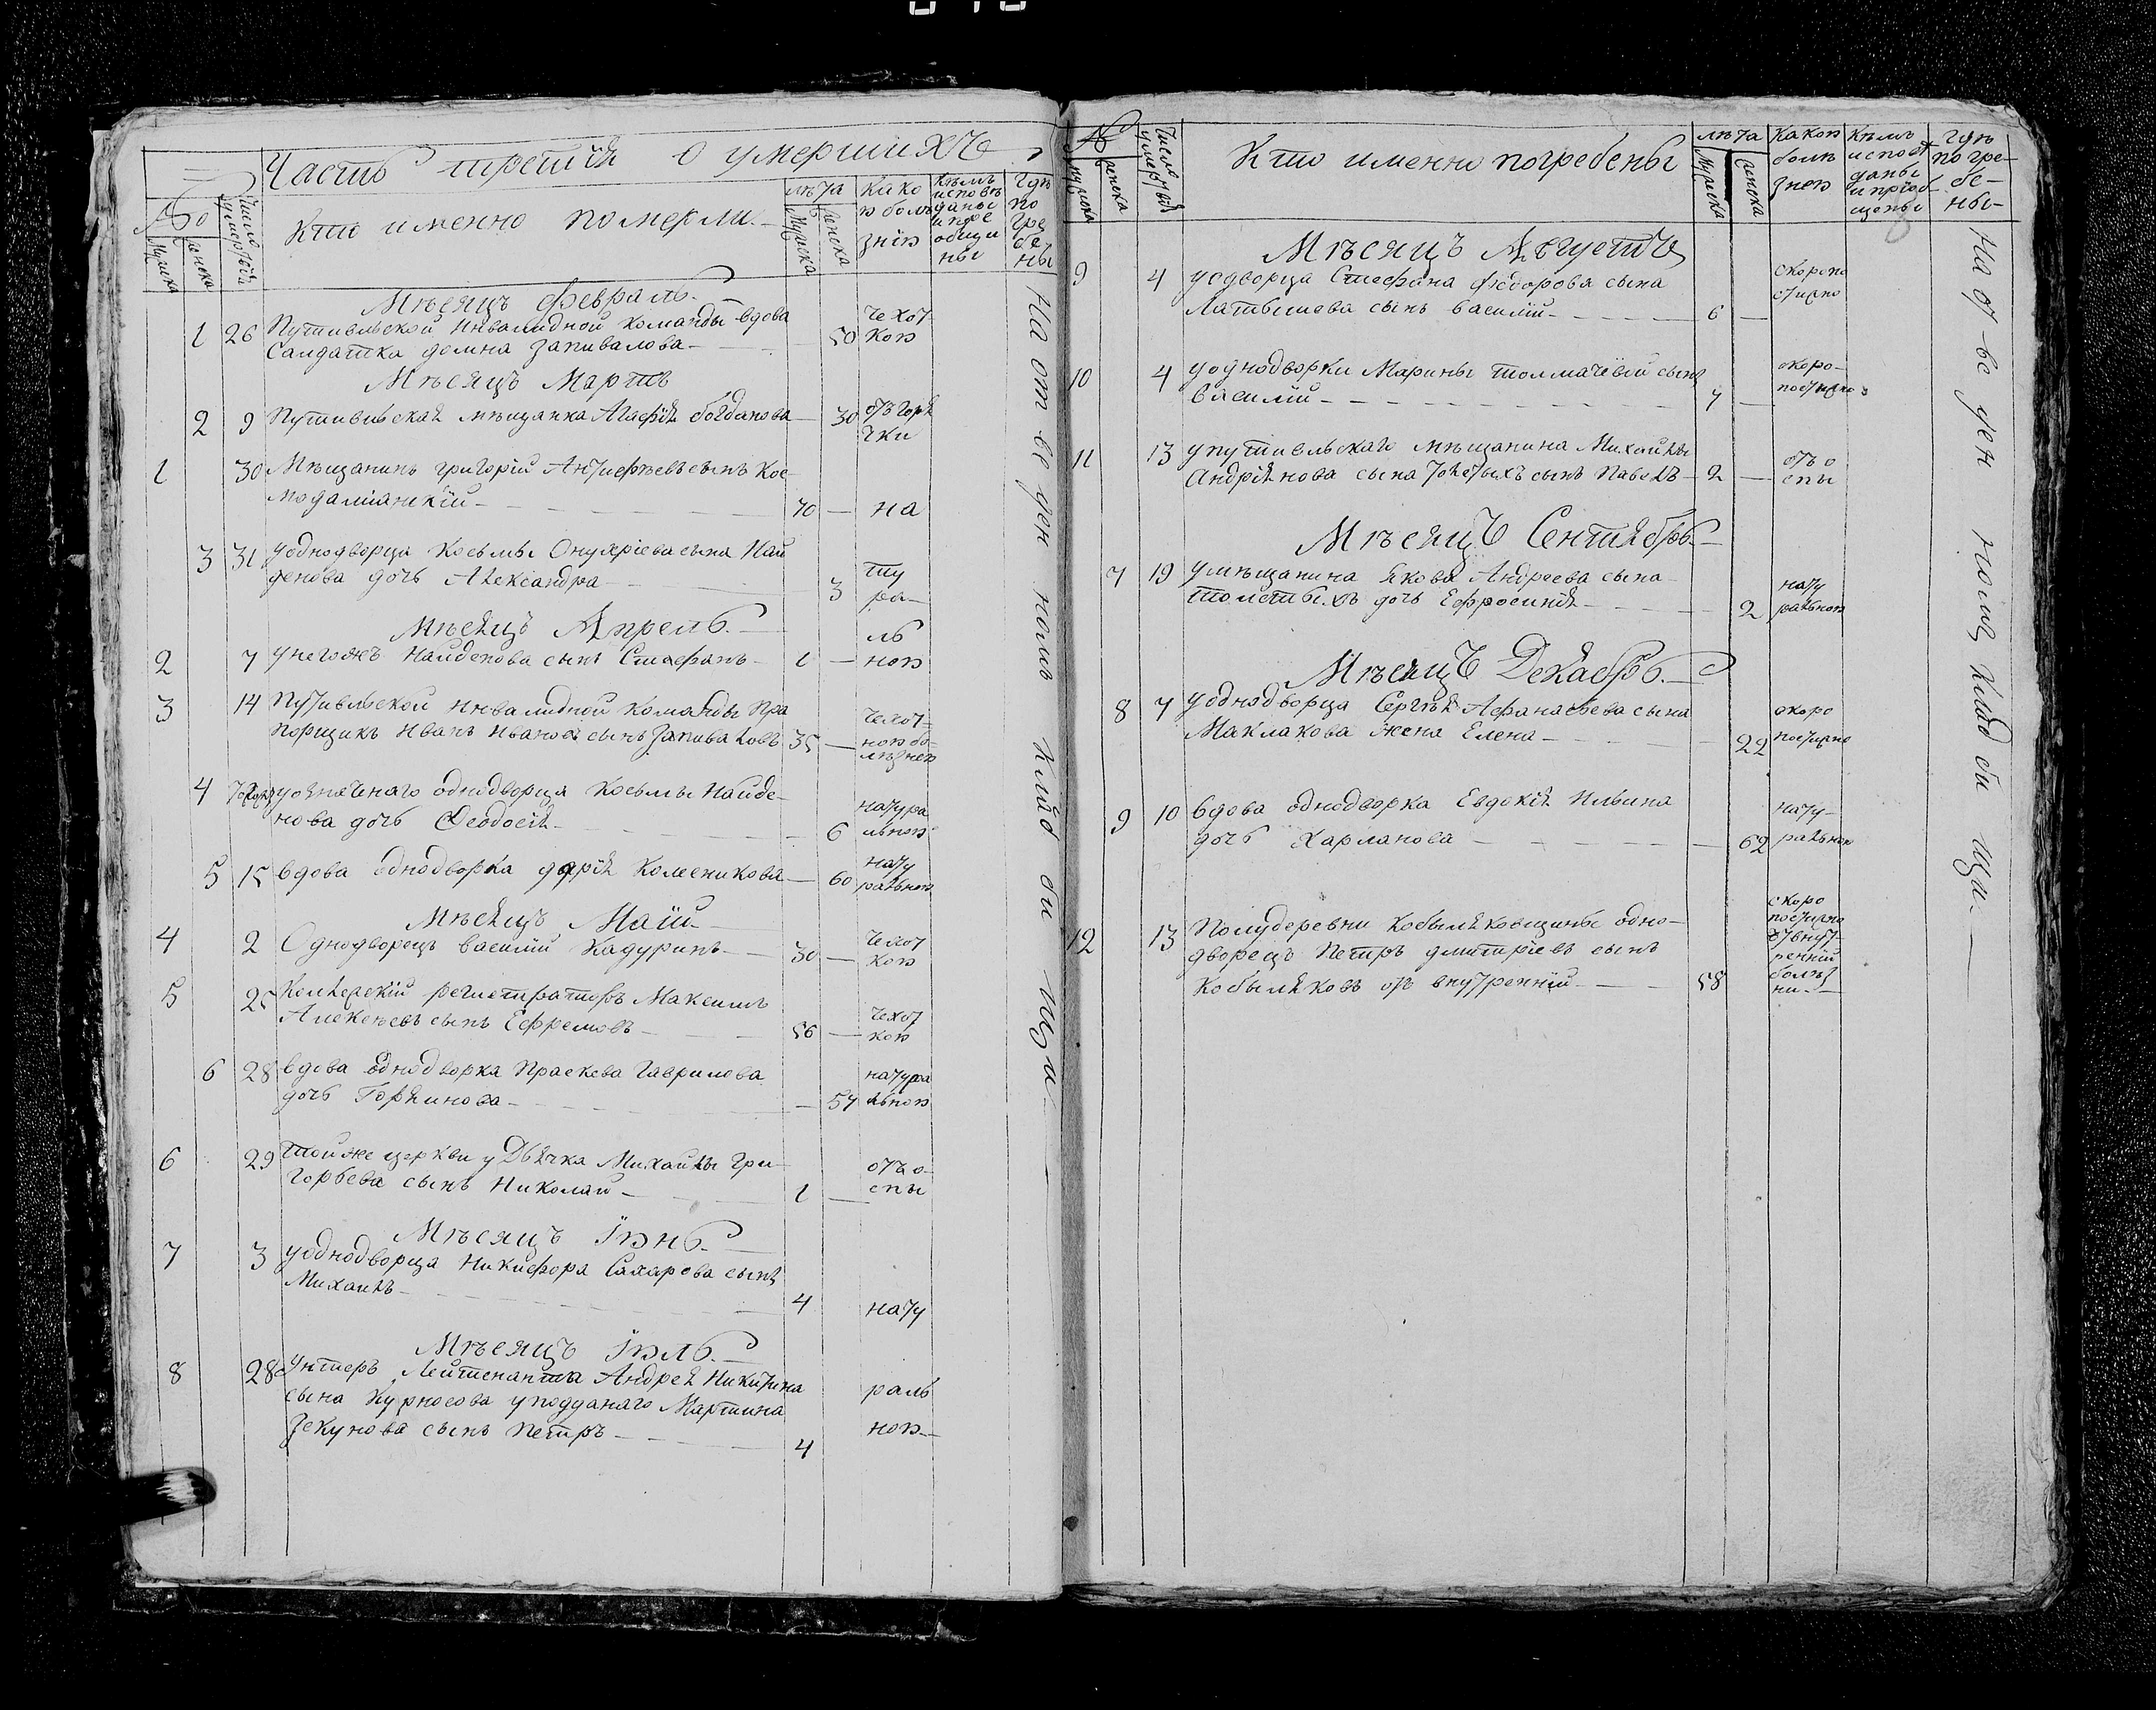 Часть третїя о умершихъ
№
Мужеска
Женска
Число умершїй
Кто именно померли.
лѣта
Мужеска
Женска
Како
ю болѣ
знїю
Кѣмъ
исповѣ
даны
и прі
общи
ны
Гдѣ
по
гре
бе
ны
Мѣсяцъ Февраль.
1 26 Путивльской Инвалидной Команды вдова
Салдатка домна Запивалова — 50 чехот
кою
Мѣсяцъ Мартъ
2 9 Путивльская мѣщанка Агафїя богданова — 30 отъ горя
чки
1 30 Мѣщанинъ григорїй Антифѣевъ сынъ Кос
модамїанскїй — 70 — на
3 31 у однодворца Косьмы Онуфрїева сына Най
денова дочь Александра — 3 ту
ра
Мѣсяцъ Апрель.
ль
2 7 у негожъ Найденова сынъ Стефанъ — 1 — ною
3 14 Путивльской инвалидной команды Пра
порщикъ Иванъ Ивановъ сынъ Запиваловъ 35 — чехот
ною бо
лѣзнею
4 у означеннаго однодворца Косьмы Найде
нова дочь Феодосїя — 6 натура
льною
5 15 вдова однодворка дарїя Колесникова — 60 нату
ральною
Мѣсяцъ Маїй
4 2 Однодворецъ василїй Кадуринъ — 30 — чехот
кою
5 25 Колежскїй регистраторъ Максимъ
Алексѣевъ сынъ Ефремовъ — 56 — чехот
кою
6 28 вдова однодворка Праскева Гаврилова
дочь Горяинова — 57 натура
льною
6 29 Той же церкви у Дьячка Михаилы Гри
горьева сынъ Николай — 1 — отъ о
спы
Мѣсяцъ Їюнь.
7 3 у однодворца Никифора Сахарова сынъ
Михаилъ — 4 нату
Мѣсяцъ Їюль.
8 28 Унтеръ Лейтенанта Андрея Никитина
сына Курносова у подданаго Мартина
Зекунова сынъ Петръ — 4
раль
ною
На от ве ден номъ клад би щи
№
Мужеска
Женска
Число умершїй
Кто именно погребены
лѣта
Мужеска
Женска
Какою
болѣ
знею
Кѣмъ
исповѣ
даны
и прїоб
щены
Гдѣ
погре-
бе-
ны-
Мѣсяцъ Августъ
9 4 у одворца Стефана Федорова сына
Латышева сынъ василїй — 6 — скоропо
стижно
10 4 у однодворки Марины толмачевой сынъ
василїй — 7 — скоро-
постижно
11 13 у путивльскаго мѣщанина Михаилы
Андрїянова сына толстыхъ сынъ Павелъ — 2 — отъ о
спы
Мѣсяцъ Сентябрь.
7 19 у мѣщанина Якова Андреева сына
толстыхъ дочь Ефросинїя — 2 нату
ральною
Мѣсяцъ Декабрь.
8 7 у однодворца Сергѣя Афанасьева сына
Маклакова жена Елена — 22 скоро
постижно
9 10 вдова однодворка Евдокїя Ильина
дочь Харланова — 62 нату-
ральною
12 13 Полудеревни Кобыляковщины одно-
дворецъ Петръ дмитрїевъ сынъ
Кобыляковъ отъ внутренней — 58
скоро
постижно
отъ внут-
ренней
болѣз
ни
На от ве ден номъ клад би щи